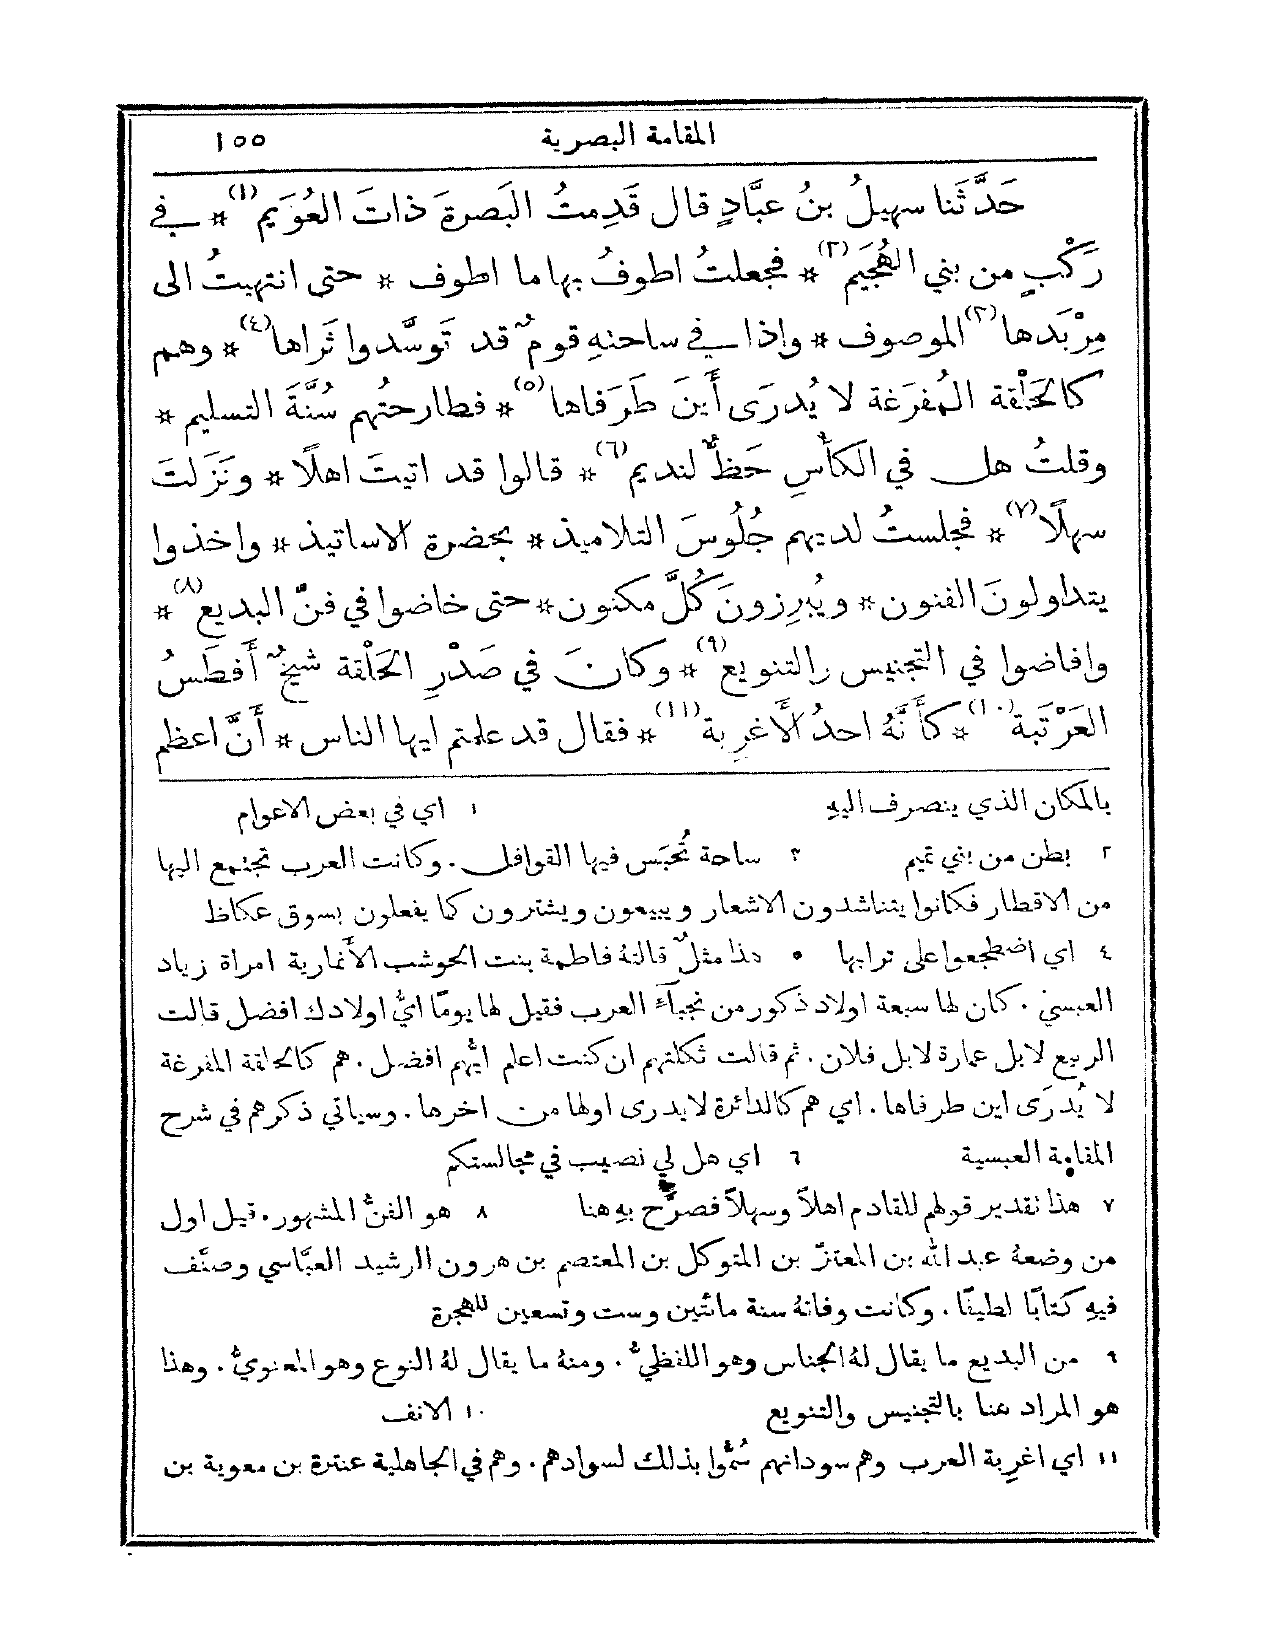 المقامة البصرية ١٥٥
حَدَّثَنا سهيلُ بنُ عبَّادٍ قال قَدِمتُ البَصرةَ ذاتَ العُوَيم(١) * في
رَكْبٍ من بني الهُجَيم(٢) * فجعلتُ اطوفُ بها ما اطوف * حتى انتهيتُ الى
مِرْبَدها(٣) الموصوف * واذا في ساحتهِ قومٌ قد تَوسَّدوا ثَراها(٤) * وهم
كالحَلْقة المُفرَغة لا يُدرَى أَينَ طَرَفاها(٥) * فطارحتُهم سُنَّةَ التسليم *
وقلتُ هل في الكأْسِ حَظٌّ لنديم(٦) * قالوا قد اتيتَ اهلًا * ونَزَلتَ
سهلًا(٧) * فجلستُ لديهم جُلُوسَ التلاميذ * بحضرة الاساتيذ * واخذوا
يتداولونَ الفنون * ويُبرِزونَ كُلَّ مكنون * حتى خاضوا في فنّ البديع(٨) *
وافاضوا في التجنيس والتنويع(٩) * وكان في صَدْرِ الحَلْقة شيخٌ أَفطَسُ
العَرْتَبة(١٠) * كأَنَّهُ احدُ الأَغرِبة(١١) * فقال قد علمتم ايها الناس * أَنَّ اعظم
بالمكان الذي ينصرف اليهِ ١ اي في بعض الاعوام
٢ بطن من بني تميم ٣ ساحة تُحبَس فيها القوافل. وكانت العرب تجتمع اليها
من الاقطار فكانوا يتناشدون الاشعار ويبيعون ويشترون كما يفعلون بسوق عكاظ
٤ اي اضطجعوا على ترابها ٥ هذا مثلٌ قالتهُ فاطمة بنت الحوشب الأَنمارية امراة زياد
العبسيّ. كان لها سبعة اولاد ذكور من نجبآء العرب فقيل لها يومًا ايُّ اولادك افضل قالت
الربيع لا بل عمارة لا بل فلان. ثم قالت ثكلتهم ان كنت اعلم ايُّهم افضل. هم كالحلقة المفرغة
لا يُدرَى اين طرفاها. اي هم كالدائرة لا يدرى اولها من اخرها. وسياتي ذكرهم في شرح
المقامة العبسية ٦ اي هل لي نصيب في مجالستكم
٧ هذا تقدير قولهم للقادم اهلاً وسهلاً فصرَّح بهِ هنا ٨ هو الفنُّ المشهور. قيل اول
من وضعهُ عبد الله بن المعتزّ بن المتوكل بن المعتصم بن هرون الرشيد العبَّاسي وصنَّف
فيهِ كتابًا لطيفًا. وكانت وفاتهُ سنة مائتين وست وتسعين للهجرة
٩ من البديع ما يقال لهُ الجناس وهو اللفظيُّ. ومنهُ ما يقال لهُ النوع وهو المعنويُّ. وهذا
هو المراد هنا بالتجنيس والتنويع ١٠ الانف
١١ اي اغرِبة العرب وهم سودانهم سُمُّوا بذلك لسوادهم. وهم في الجاهلية عنترة بن معوية بن